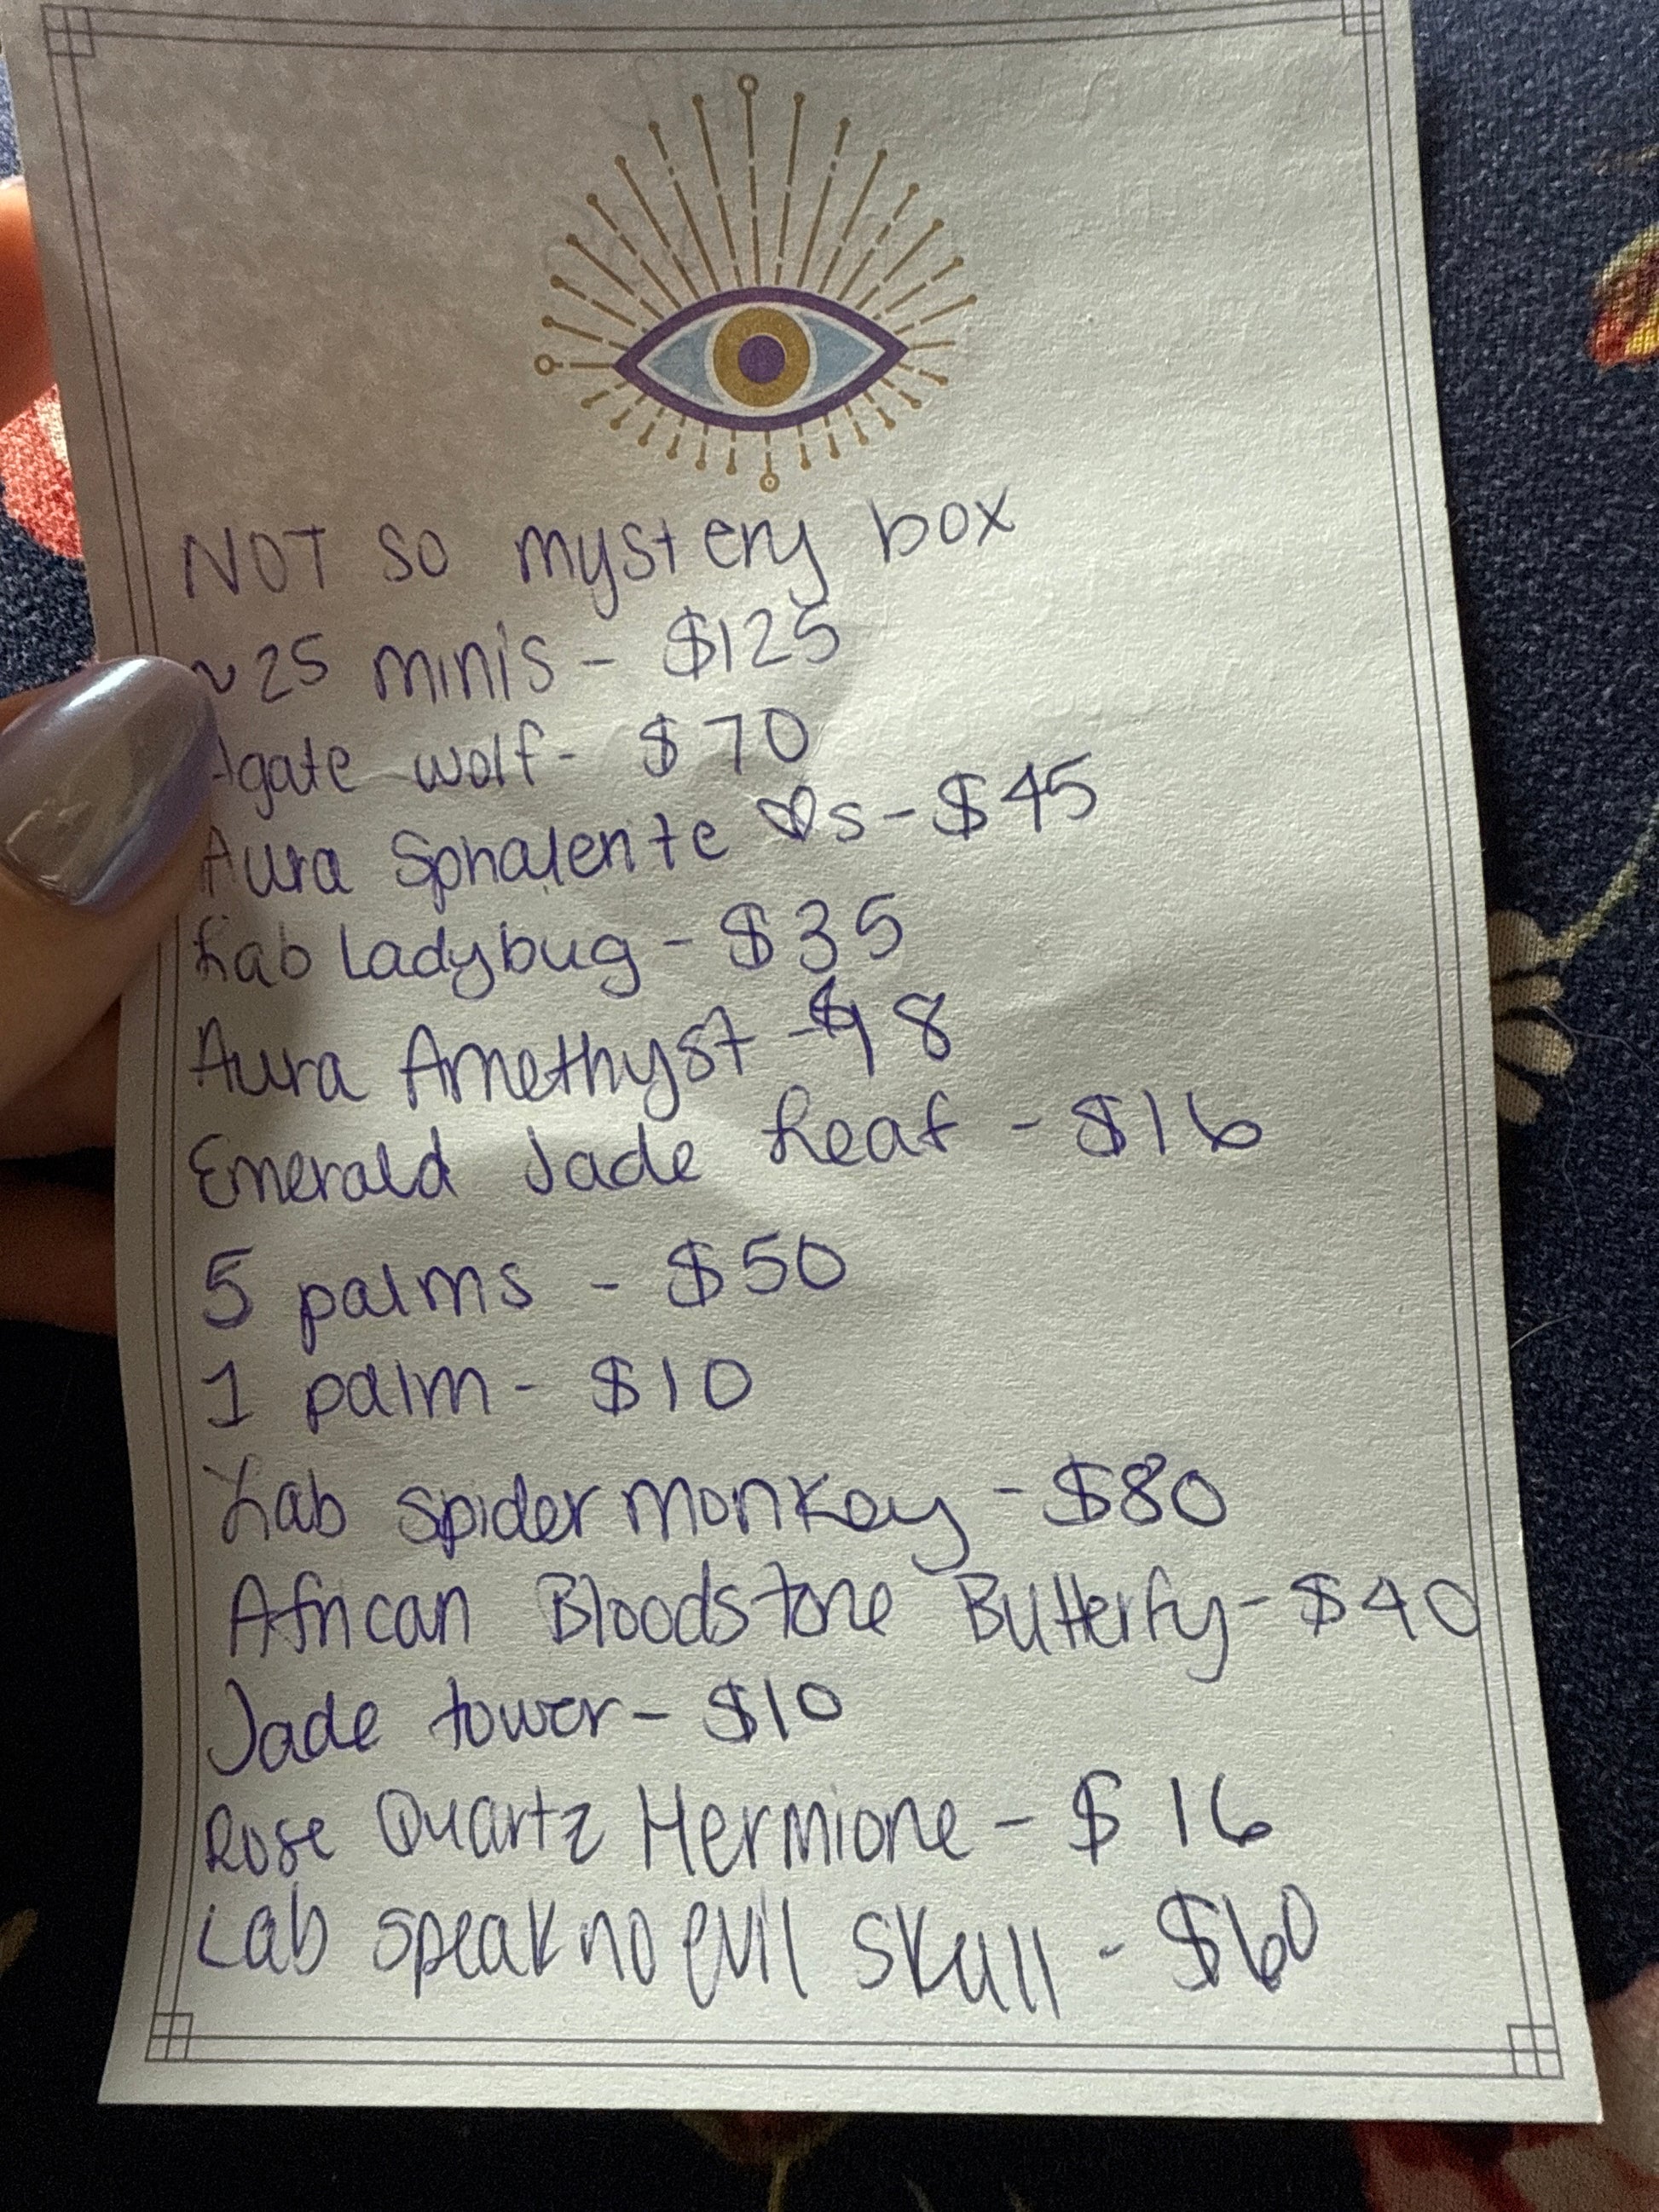 NOT SO mystery box
~25 minis - $125
Agate wolf - $70
Aura Sphalerite ♡s - $45
Lab Ladybug - $35
Aura Amethyst - $18
Emerald Jade Leaf - $16
5 palms - $50
1 palm - $10
Lab spider monkey - $80
African Bloodstone Butterfy - $40
Jade tower - $10
Rose Quartz Hermione - $16
Lab speak no evil skull - $60